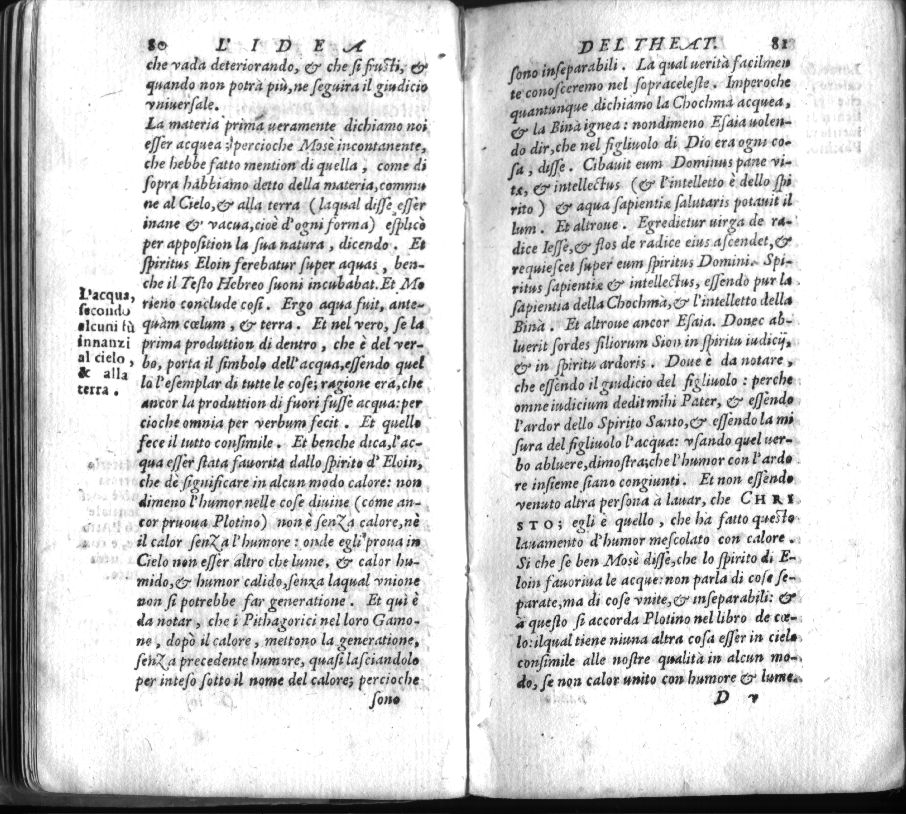 80 L'IDEA
che vada deteriorando, & che si frusti, &
quando non potrà più, ne seguira il giudicio
vniuersale.
La materia prima ueramente dichiamo noi
esser acquea: percioche Mosè incontanente,
che hebbe fatto mention di quella, come di
sopra habbiamo detto della materia, commu
ne al Cielo, & alla terra (laqual disse esser
inane & vacua, cioè d'ogni forma) esplicò
per apposition la sua natura, dicendo. Et
spiritus Eloin ferebatur super aquas, ben-
che il Testo Hebreo suoni incubabat. Et Mo
rieno conclude cosi. Ergo aqua fuit, ante-
quàm cœlum, & terra. Et nel vero, se la
prima produttion di dentro, che è del ver-
bo, porta il simbolo dell'acqua, essendo quel
la l'esemplar di tutte le cose; ragione era, che
ancor la produttion di fuori fusse acqua: per
cioche omnia per verbum fecit. Et quello
fece il tutto consimile. Et benche dica, l'ac-
qua esser stata fauorita dallo spirito d'Eloin,
che dè significare in alcun modo calore: non
dimeno l'humor nelle cose diuine (come an-
cor pruoua Plotino) non è senza calore, nè
il calor senza l'humore: onde egli proua in
Cielo non esser altro che lume, & calor hu-
mido, & humor calido, senza laqual vnione
non si potrebbe far generatione. Et quì è
da notar, che i Pithagorici nel loro Gamo-
ne, dopò il calore, mettono la generatione,
senza precedente humore, quasi lasciandolo
per inteso sotto il nome del calore; percioche
sono
L'acqua,
secondo
alcuni fù
innanzi
al cielo,
& alla
terra.
DEL THEAT. 81
sono inseparabili. La qual uerità facilmen
te conosceremo nel sopraceleste. Imperoche
quantunque dichiamo la Chochmà acquea,
& la Binà ignea: nondimeno Esaia uolen-
do dir, che nel figliuolo di Dio era ogni co-
sa, disse. Cibauit eum Dominus pane vi-
tæ, & intellectus (& l'intelletto è dello spi
rito) & aqua sapientiæ salutaris potauit il
lum. Et altroue. Egredietur uirga de ra-
dice Iesse, & flos de radice eius ascendet, &
requiescet super eum spiritus Domini. Spi-
ritus sapientiæ & intellectus, essendo pur la
sapientia della Chochmà, & l'intelletto della
Binà. Et altroue ancor Esaia. Donec ab-
luerit sordes filiorum Sion in spiritu iudicij,
& in spiritu ardoris. Doue è da notare,
che essendo il giudicio del figliuolo: perche
omne iudicium dedit mihi Pater, & essendo
l'ardor dello Spirito Santo, & essendo la mi
sura del figliuolo l'acqua: vsando quel uer-
bo abluere, dimostra; che l'humor con l'ardo
re insieme siano congiunti. Et non essendo
venuto altra persona à lauar, che CHRI
STO; egli è quello, che ha fatto questo
lauamento d'humor mescolato con calore.
Si che se ben Mosè disse, che lo spirito di E-
loin fauoriua le acque: non parla di cose se-
parate, ma di cose vnite, & inseparabili: &
à questo si accorda Plotino nel libro de cœ-
lo: ilqual tiene niuna altra cosa esser in cielo
consimile alle nostre qualità in alcun mo-
do, se non calor unito con humore & lume.
D v